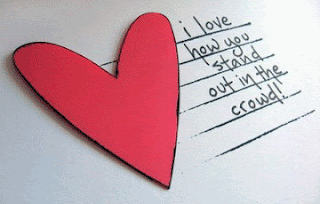 i love
how you
stand
out in the
crowd!